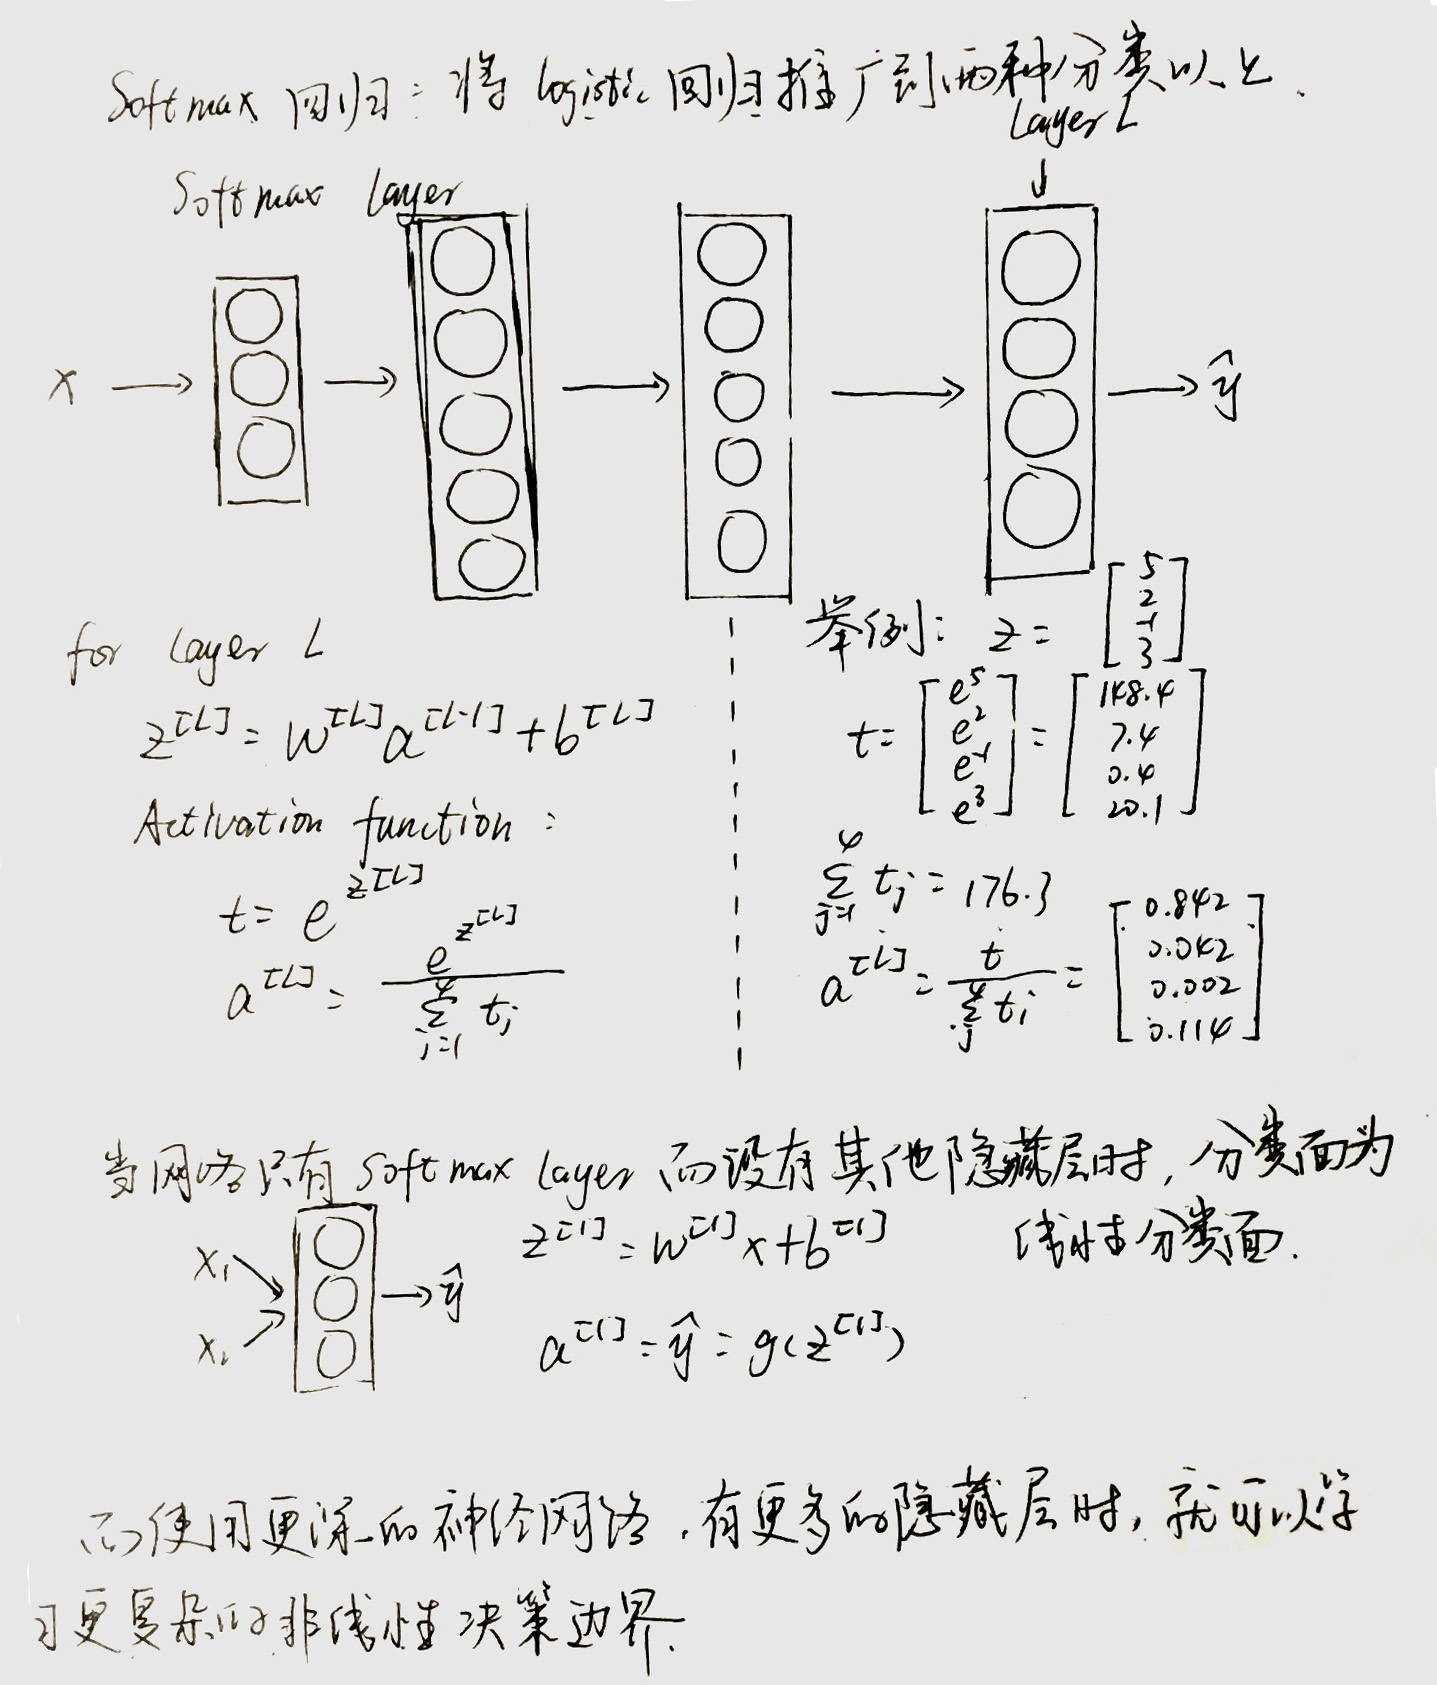 Softmax 回归：将 logistic 回归推广到两种分类以上.
Layer L
Softmax Layer
x
ŷ
for layer L
z^[L] = w^[L] a^[L-1] + b^[L]
Activation function：
t = e^z^[L]
a^[L] = e^z^[L] / ∑_{j=1}^4 t_j
举例： z = [5 2 -1 3]
t = [e^5 e^2 e^-1 e^3] = [148.4 7.4 0.4 20.1]
∑_{j=1}^4 t_j = 176.3
a^[L] = t / ∑_j^4 t_i = [0.842 0.042 0.002 0.114]
当网络只有 softmax Layer 而没有其他隐藏层时，分类面为
线性分类面.
x₁
x₂
ŷ
z^[1] = w^[1] x + b^[1]
a^[1] = ŷ = g(z^[1])
而使用更深的神经网络，有更多的隐藏层时，就可以学
习更复杂的非线性决策边界.